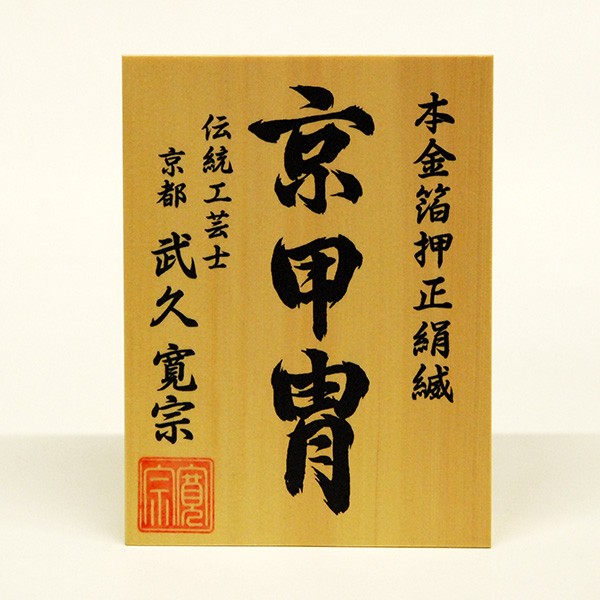 本金箔押正絹縅
京甲冑
伝統工芸士
京都 武久寛宗
寛宗